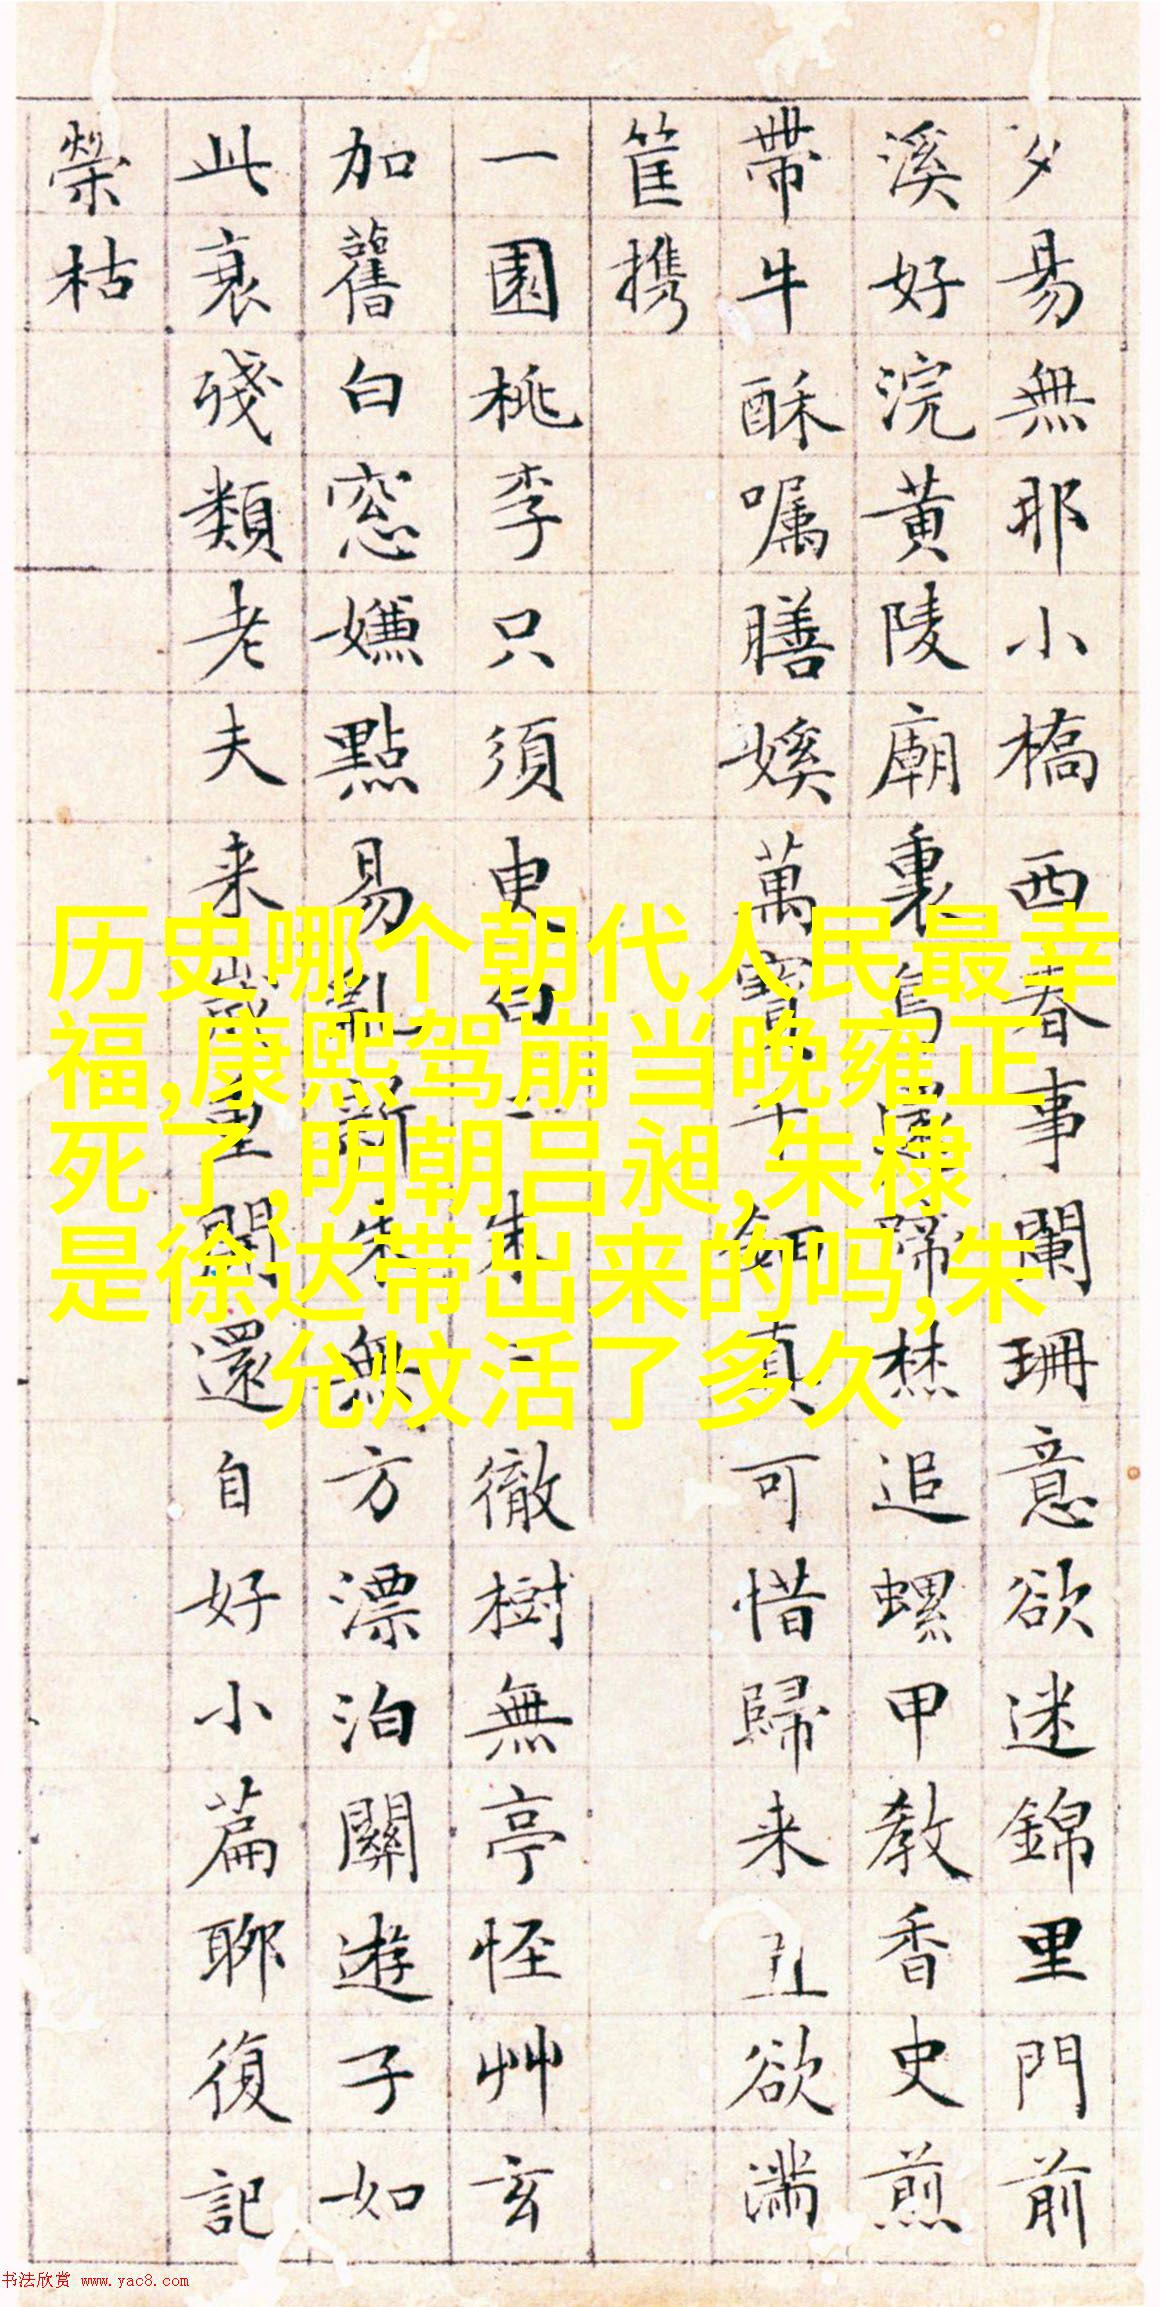 夕昜無耶小橋西春事闌珊意欲迷錦里門前
溪好浣黄陵廟裏烏歸啼追螺甲教香史煎
帶牛酥嘱膳㜎萬寶千鈿真可惜歸来欲满
筐携
一園桃李只須臾白=朱=徹樹無亭怪艸玄
加舊白窓嫌點易亂新朱無方漂泊關遊子如
此衰殘類老夫来歲重開還自好小篇聊復記
榮枯
历史哪个朝代人民最幸
福,康熙驾崩当晚雍正
死了,明朝吕昶,朱棣
是徐达带出来的吗,朱
允炆活了多久
书法欣赏 www.yac8.com